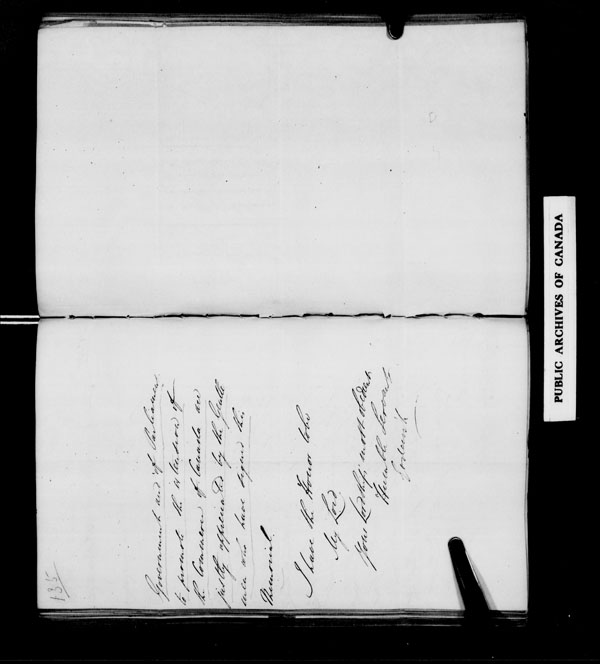 135
Government and of Parliament
to promote the extension of
the Commerce of Canada are
justly appreciated by the Gentle
men who have signed this
Memorial.
I have the Honor to be
My Lord
Your Lordship's most obedient
Humble Servant
Goderich
PUBLIC ARCHIVES OF CANADA